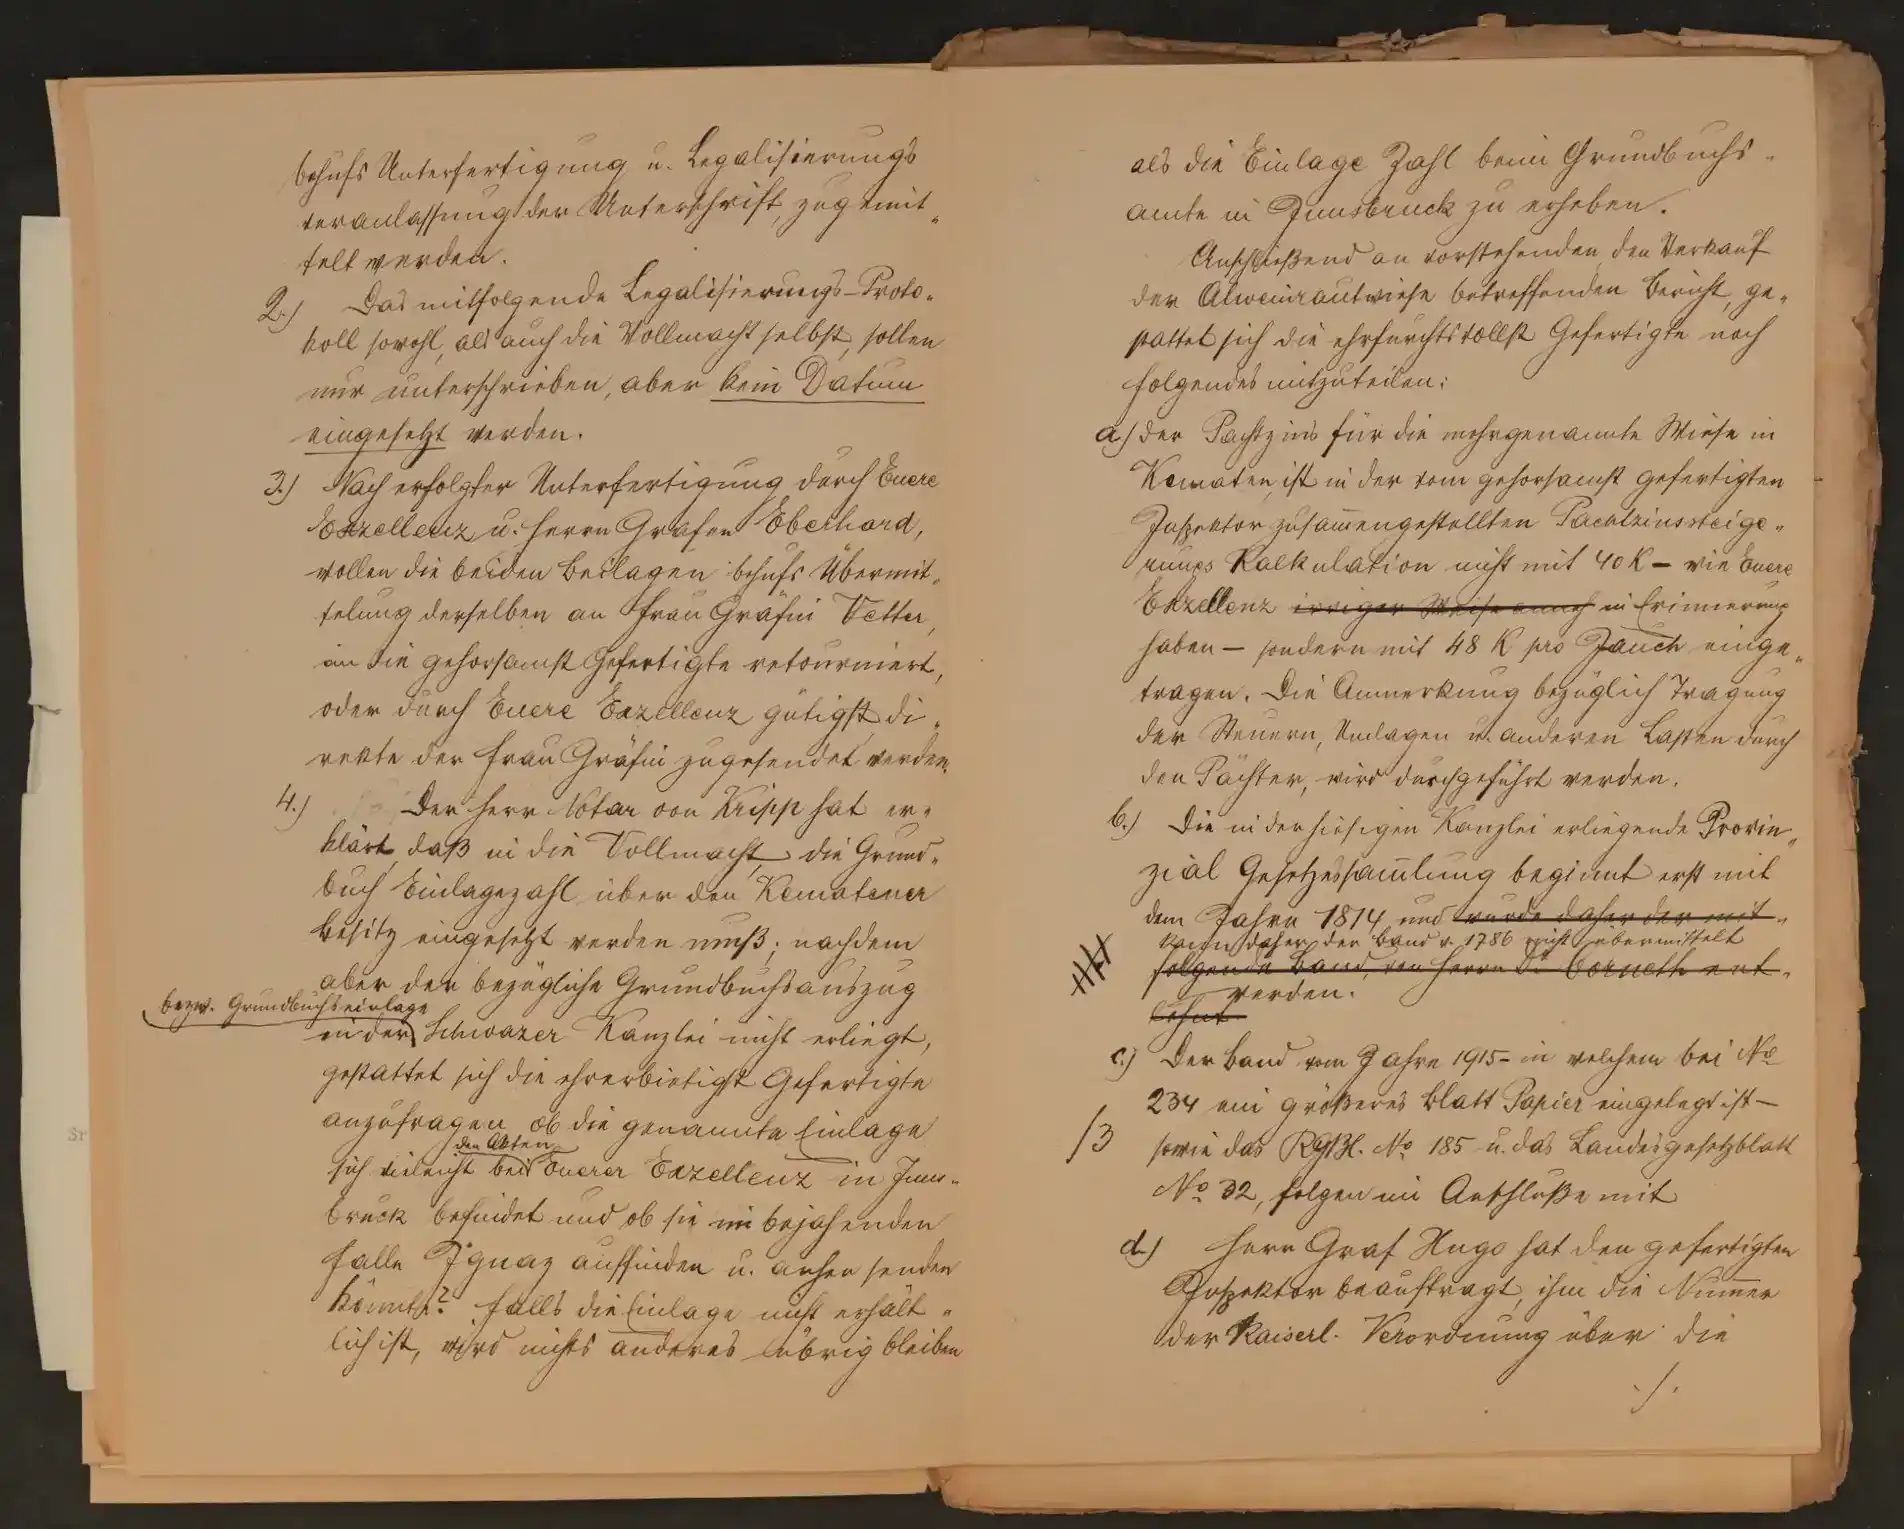 behufs Unterfertigung u. Legalisierungs
veranlassung der Unterschrift, zugemit-
telt werden.
2.) Das mitfolgende Legalisierungs-Proto-
koll sowohl, als auch die Vollmacht selbst, sollen
nur unterschrieben, aber kein Datum
eingesetzt werden.
3.) Nach erfolgter Unterfertigung durch Euere
Exzellenz u. Herrn Grafen Eberhard,
wollen die beiden Beilagen behufs Übermit-
telung derselben an Frau Gräfin Vetter,
an die gehorsamst Gefertigte retourniert,
oder durch Euere Exzellenz gütigst di-
rekte der Frau Gräfin zugesendet werden.
4.) Der Herr Notar von Kripp hat er-
klärt, daß in die Vollmacht, die Grund-
buch Einlagezahl über den Kematener
Besitz eingesetzt werden muß; nachdem
aber der bezügliche Grundbuchsauszug
bezw. Grundbuchseinlage
in der Schwazer Kanzlei nicht erliegt,
gestattet sich die ehrerbietigst Gefertigte
anzufragen, ob die genannte Einlage
den Akten
sich vieleicht bei Euerer Exzellenz in Inns-
bruck befindet und ob sie im bejahenden
Falle Ignaz auffinden u. anher senden
könnte? Falls die Einlage nicht erhält-
lich ist, wird nichts anderes übrig bleiben
als die Einlage Zahl beim Grundbuchs-
amte in Innsbruck zu erheben.
Anschließend an vorstehenden den Verkauf
der Alweinrautwiese betreffenden Bericht, ge-
stattet sich die ehrfurchtsvollst Gefertigte noch
folgendes mitzuteilen:
a.) Der Pachtzins für die mehrgenannte Wiese in
Kematen, ist in der vom gehorsamst gefertigten
Inspektor zusammengestellten Pachtzinssteige-
rungs Kalkulation nicht mit 40 K – wie Euere
Exzellenz irriger Weise annoch in Erinnerung
haben – sondern mit 48 K pro Jauch einge-
tragen. Die Anmerkung bezüglich Tragung
der Steuern, Umlagen u. anderen Lasten durch
den Pächter, wird durchgeführt werden.
b.) Die in der hiesigen Kanzlei erliegende Provin-
zial Gesetzessammlung beginnt erst mit
dem Jahre 1814 und wurde daher der mit-
kann daher der Band v. 1786 nicht übermittelt
folgende Band, von Herrn Dr Corneth ent-
werden.
lehnt.
c.) Der Band vom Jahre 1915 – in welchem bei No
234 ein größeres Blatt Papier eingelegt ist –
/3 sowie das RGBl. No 185 u. das Landesgesetzblatt
No 32, folgen im Anschluße mit
d.) Herr Graf Hugo hat den gefertigten
Inspektor beauftragt, ihm die Nummer
der Kaiserl. Verordnung über die
./.